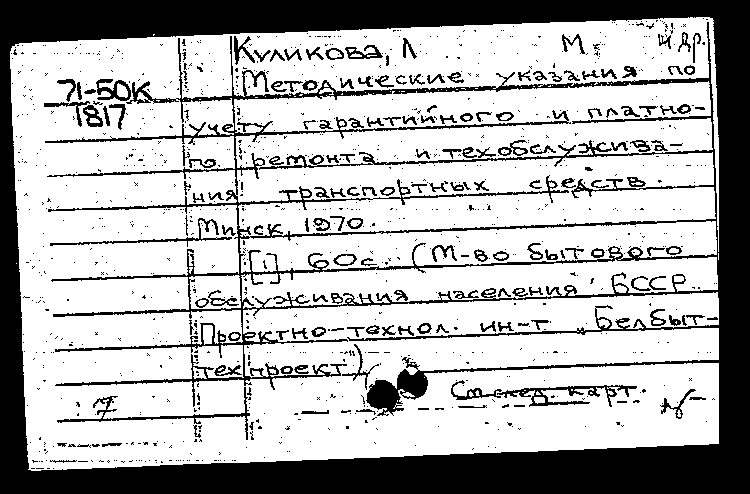 Куликова, Л М. и др.
71-50К
1817
Методические указания по
учету гарантийного и платно-
го ремонта и техобслужива-
ния транспортных средств.
Минск, 1970.
[1], 60с. (М-во бытового
обслуживания населения БССР.
Проектно-технол. ин-т „Белбыт-
техпроект")
См след. карт.
7